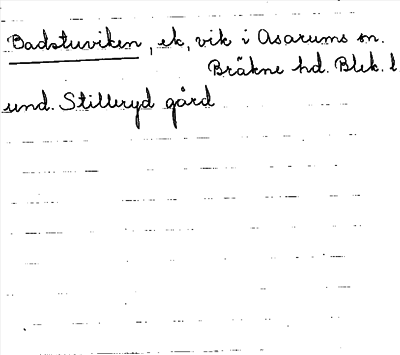 Badstuviken, ek, vik i Asarums sn.
Bräkne hd. Blek. l
und. Stilleryd gård